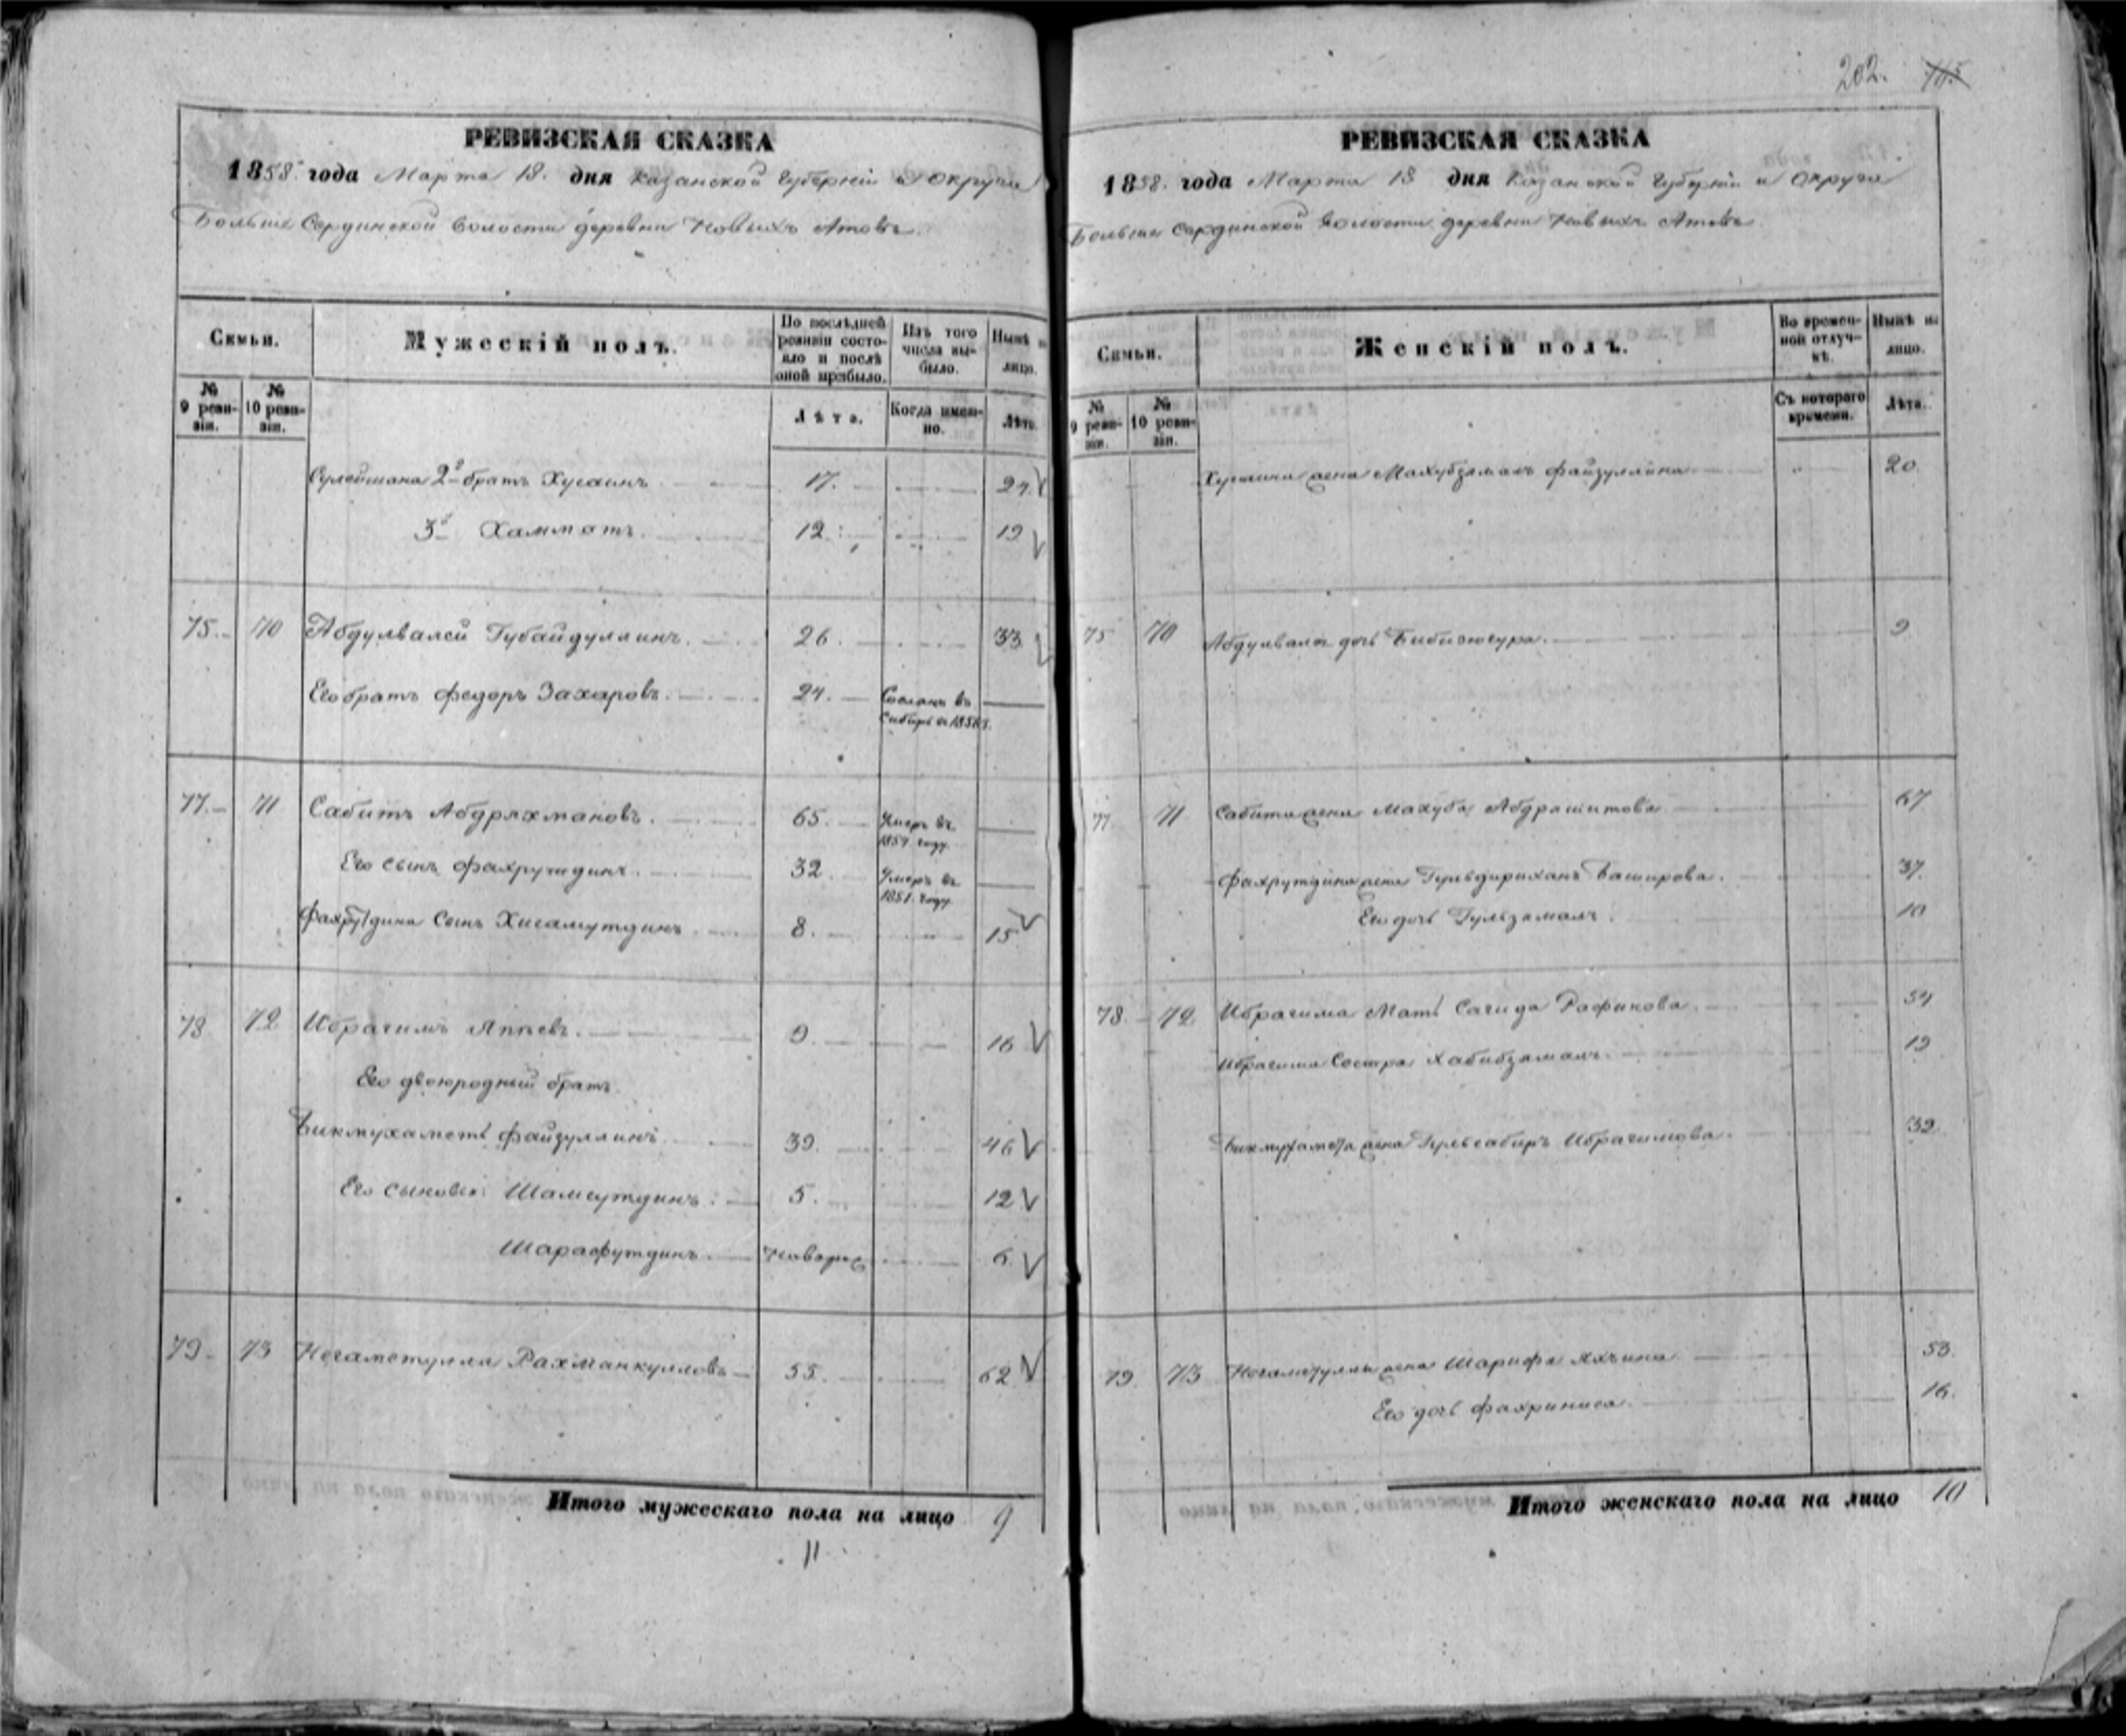 РЕВИЗСКАЯ СКАЗКА
1858 года Марта 18 дня Казанской Губерніи и округа
Больше Сердинской волости деревни Новыхъ Атовъ.
Семьи.
Мужескій полъ.
По послѣдней ревизіи состояло и послѣ оной прибыло.
Изъ того числа выбыло.
Нынѣ на лицо.
№ 9 ревизіи.
№ 10 ревизіи.
Лѣта.
Когда именно.
Лѣта.
Сулеймана 2й братъ Хусаинъ 17. 24
3й Хамматъ 12 19
75 70 Абдулвалей Губайдуллинъ 26 33
Его братъ Федоръ Захаровъ 24 Сосланъ въ
Сибирь въ
77 71 Сабитъ Абдряхмановъ 65 Умеръ въ
1857 году
Его сынъ Фахрутдинъ 32 Умеръ въ
1851 году
Фахрутдина Сынъ Хисамутдинъ 8 15
78 72 Ибрагимъ Аппевъ 9 16
Его двоюродный братъ
Бикмухаметъ Файзуллинъ 39 46
Его сыновья: Шамсутдинъ 5 12
Шарафутдинъ Новорож 6
79 73 Негаметулла Рахманкуловъ 55 62
Итого мужескаго пола на лицо 9
11
202.
РЕВИЗСКАЯ СКАЗКА
1858 года Марта 18 дня Казанской Губерніи и Округа
Больше Сердинской волости деревни Новыхъ Атовъ
Семьи.
Женскій полъ.
Во временной отлучкѣ.
Нынѣ на лицо.
№ 9 ревизіи.
№ 10 ревизіи.
Съ котораго времени.
Лѣта.
Хусаина жена Махубзямалъ Файзуллина " 20
75 70 Абдулвалея дочь 9
77 71 Сабита жена Махуба Абдрашитова 67
Фахрутдина жена Гульдириханъ Баширова 37
Его дочь Гульзямалъ 10
78 72 Ибрагима Мать Сагида Рафикова 54
Ибрагима Сестра Хабибзямалъ 19
Бикмухамета жена Гульсабиръ Ибрагимова 39
79 73 Негаметуллы жена Шарифа Яхьина 53
Его дочь Фахриниса 16
Итого женскаго пола на лицо 10